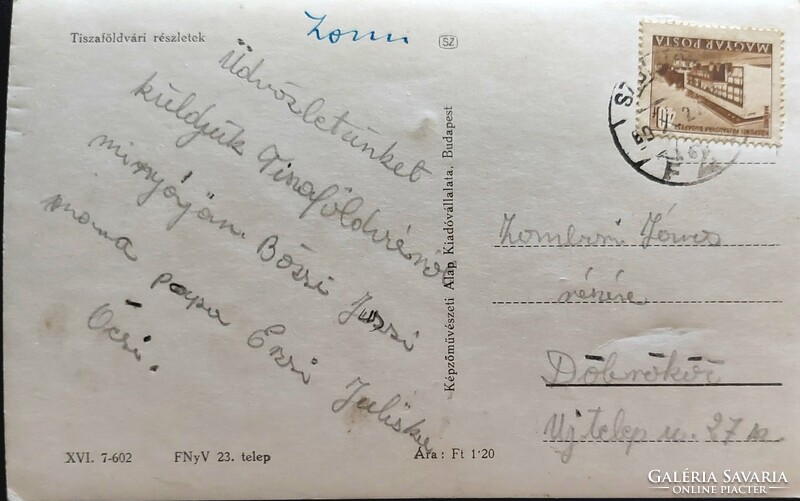 Tiszaföldvári részletek
Zomi
SZ
Üdvözletünket
küldjük Tiszaföldvárról
minyóján Bözsi Juszi
mama papa Erzsi Juliska
Öcsi.
Képzőművészeti Alap Kiadóvállalata, Budapest
MAGYAR POSTA
Zombori János
részére
Döbrököz
Ujtelep u. 27
XVI. 7-602 FNyV 23. telep Ára : Ft 1·20
GALÉRIA SAVARIA
ONLINE PIACTÉR